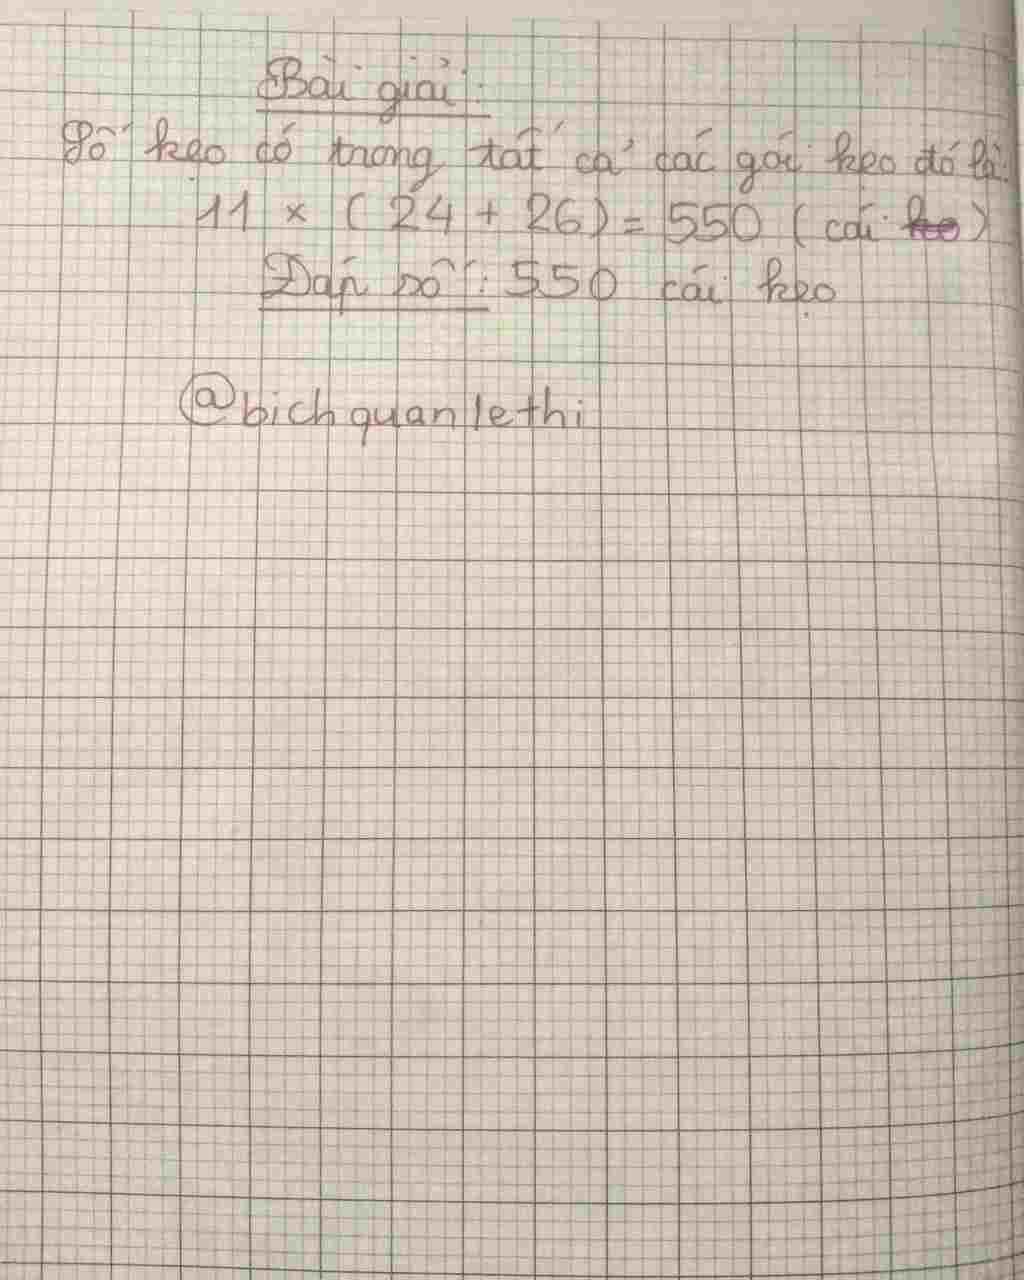 Bài giải:
Số kẹo có trong tất cả các gói kẹo đó là:
11 × ( 24 + 26 ) = 550 ( cái kẹo )
Đáp số: 550 cái kẹo
@bichquanlethi